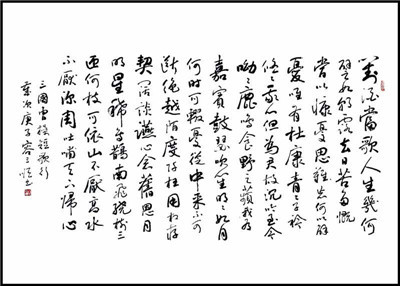 對酒當歌人生幾何
譬如朝露去日苦多慨
當以慷憂思難忘何以解
憂唯有杜康青々子衿
悠々我心但為君故沉吟至今
呦々鹿鳴食野之蘋我有
嘉賓鼓瑟吹笙明々如月
何時可掇憂從中來不可
斷絕越陌度阡枉用相存
契闊談讌心念舊恩月
明星稀烏鵲南飛繞樹三
匝何枝可依山不厭高水
不厭深周公吐哺天下歸心
三國曹操短歌行
歲次庚子